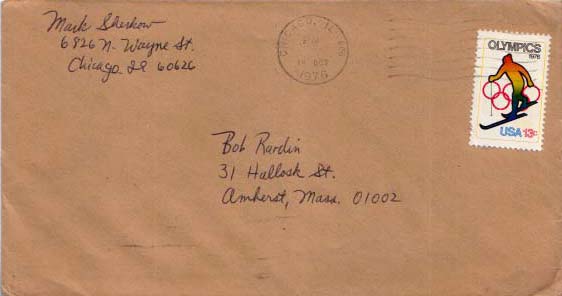 Mark Sherkow
6826 N. Wayne St.
Chicago, Il 60626
CHICAGO, IL 606
PM
OCT
1976
OLYMPICS
1976
USA 13c
Bob Rardin
31 Hallock St.
Amherst, Mass. 01002